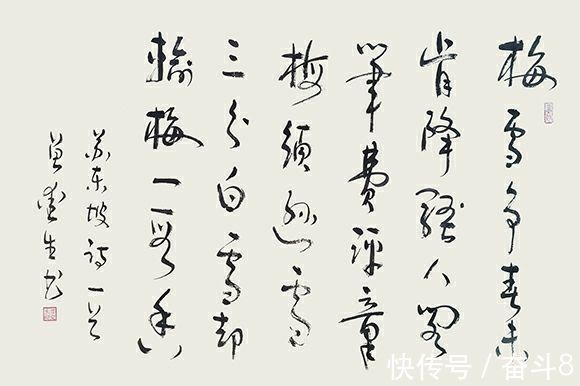 梅雪争春未
肯降骚人阁
筆费评章
梅须逊雪
三分白雪却
输梅一段香
苏东坡诗一首
生书
快传号 / 奋斗8